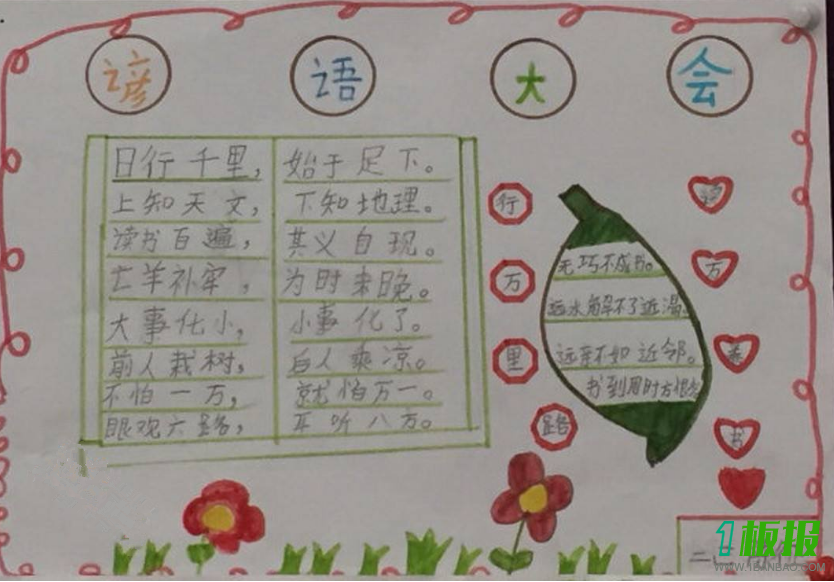 谚语大会
日行千里，始于足下。
上知天文，下知地理。
读书百遍，其义自现。
亡羊补牢，为时未晚。
大事化小，小事化了。
前人栽树，后人乘凉。
不怕一万，就怕万一。
眼观六路，耳听八方。
行
万
里
路
读
万
卷
书
无巧不成书。
远水解不了近渴
远亲不如近邻。
书到用时方恨
二
1板报
WWW.1BANBAO.COM